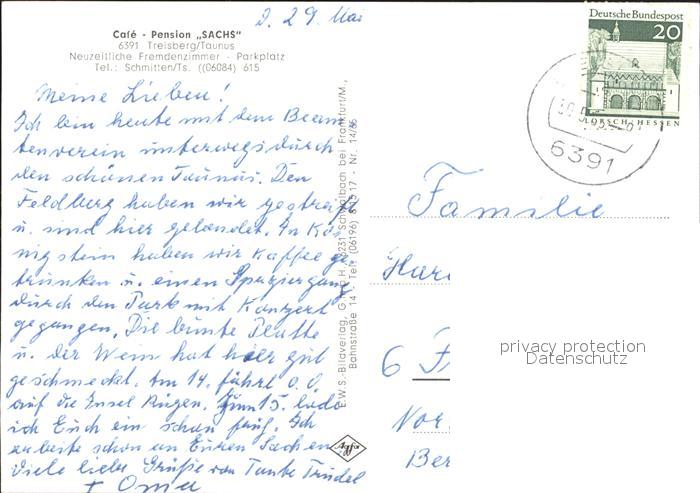 D. 29. Mai
Café - Pension „SACHS"
6391 Treisberg/Taunus
Neuzeitliche Fremdenzimmer - Parkplatz
Tel.: Schmitten/Ts. ((06084) 615
Meine Lieben!
Ich bin heute mit dem Beam
tenverein unterwegs durch
den schönen Taunus. Den
Feldberg haben wir gestreift
u. sind hier gelandet. In Kö-
nigstein haben wir Kaffee ge
trunken u. einen Spaziergang
durch den Park mit Konzert
gegangen. Die bunte Platte
u. der Wein hat hier gut
geschmeckt. Am 14. fährt O. O.
auf die Insel Rügen. Zum 15. lade
ich Euch ein schon Ich
arbeite schon an Euren Sachen
Viele liebe Grüße von Tante Trudel
+ Oma
E.W.S.-Bildverlag, G.m.b.H. 6231 Schwalbach bei Frankfurt/M.,
Bahnstraße 14 Tel. (06196) Nr. 14/86
Agfa
Deutsche Bundespost
20
LORSCH HESSEN
6391
Familie
Har
6 F
Nor
Ber
privacy protection
Datenschutz